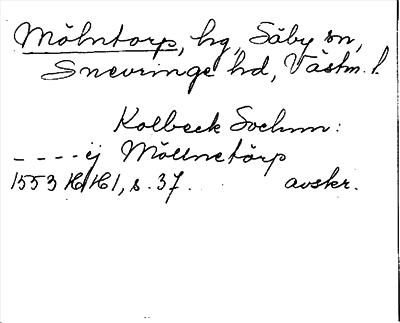 Mölntorp, hg, Säby sn,
Snevringe hd, Västm. l.
Kolbeck Sochnn:
- - - - ij Möllnetörp
1553 HH 1, s. 37. avskr.